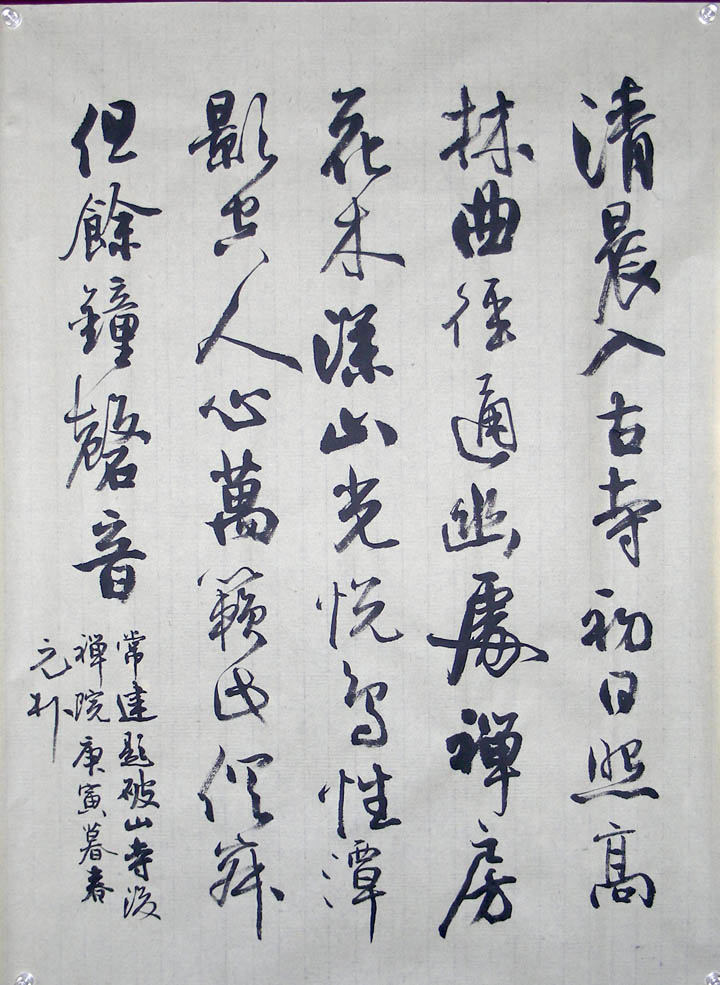 清晨入古寺初日照高
林曲徑通幽處禅房
花木深山光悦鳥性潭
影空人心萬籟此俱寂
但餘鐘磬音
常建題破山寺後
禅院庚寅暮春
元